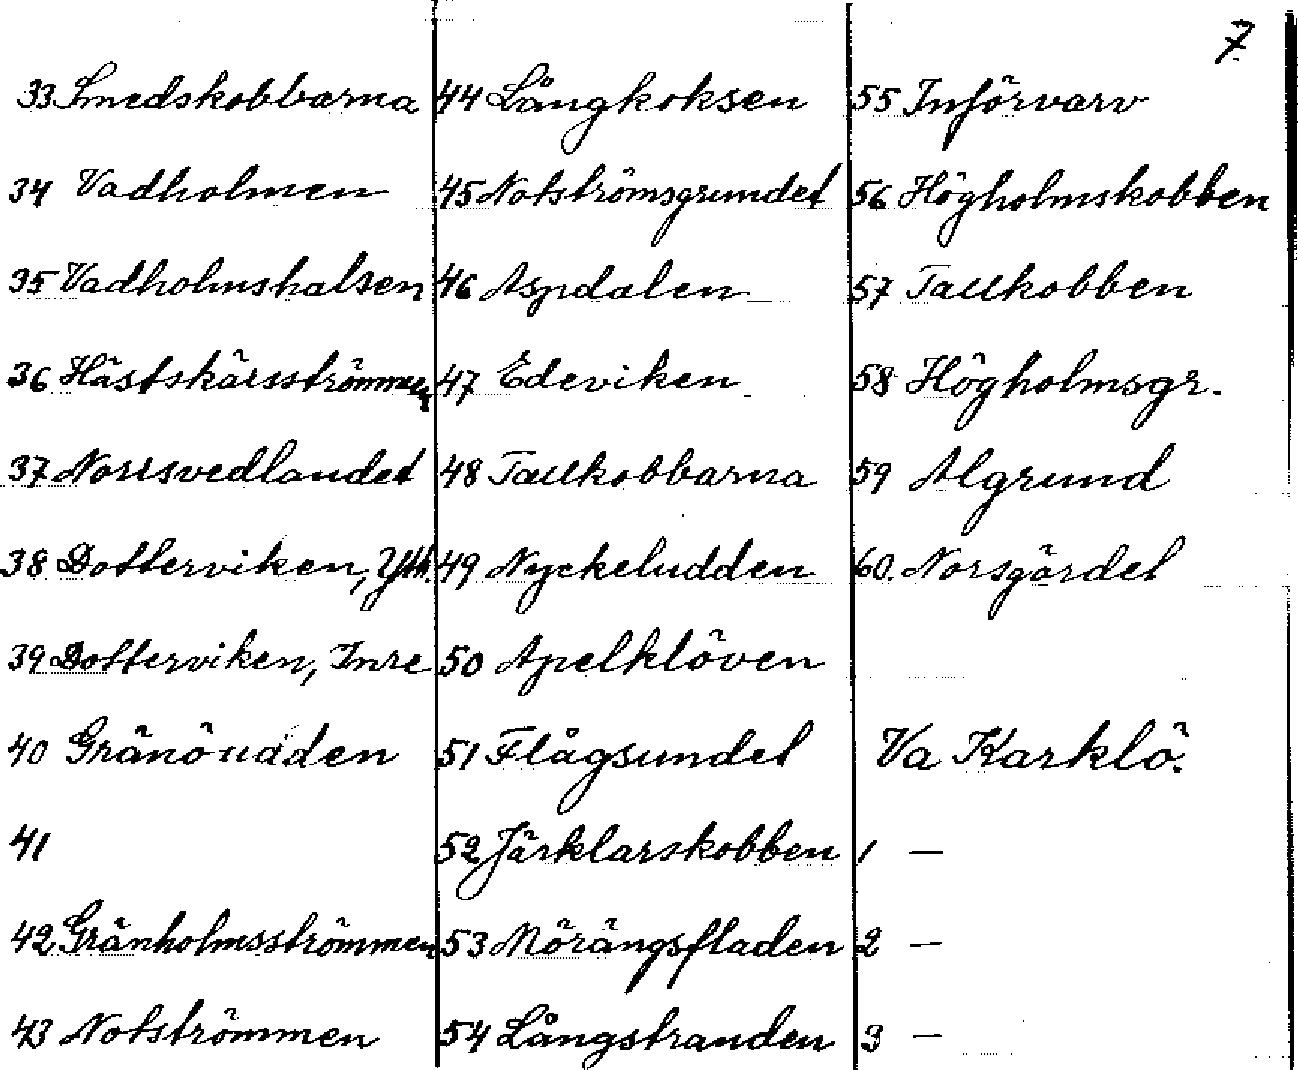 7
33 Smedskobbarna
34 Vadholmen
35 Vadholmshalsen
36 Hästskärsströmmen
37 Norrsvedlandet
38 Dotterviken, Ytt.
39 Dotterviken, Inre
40 Gränöudden
41
42 Gränholmsströmmen
43 Notströmmen
44 Långkoksen
45 Notströmsgrundet
46 Aspdalen
47 Edeviken
48 Tallkobbarna
49 Nyckeludden
50 Apelklöven
51 Flågsundet
52 Järklarskobben
53 Mörängsfladen
54 Långstranden
55 Införvarv
56 Högholmskobben
57 Tallkobben
58 Högholmsgr.
59 Algrund
60. Norsgärdet
Va Karklö.
1 —
2 —
3 —